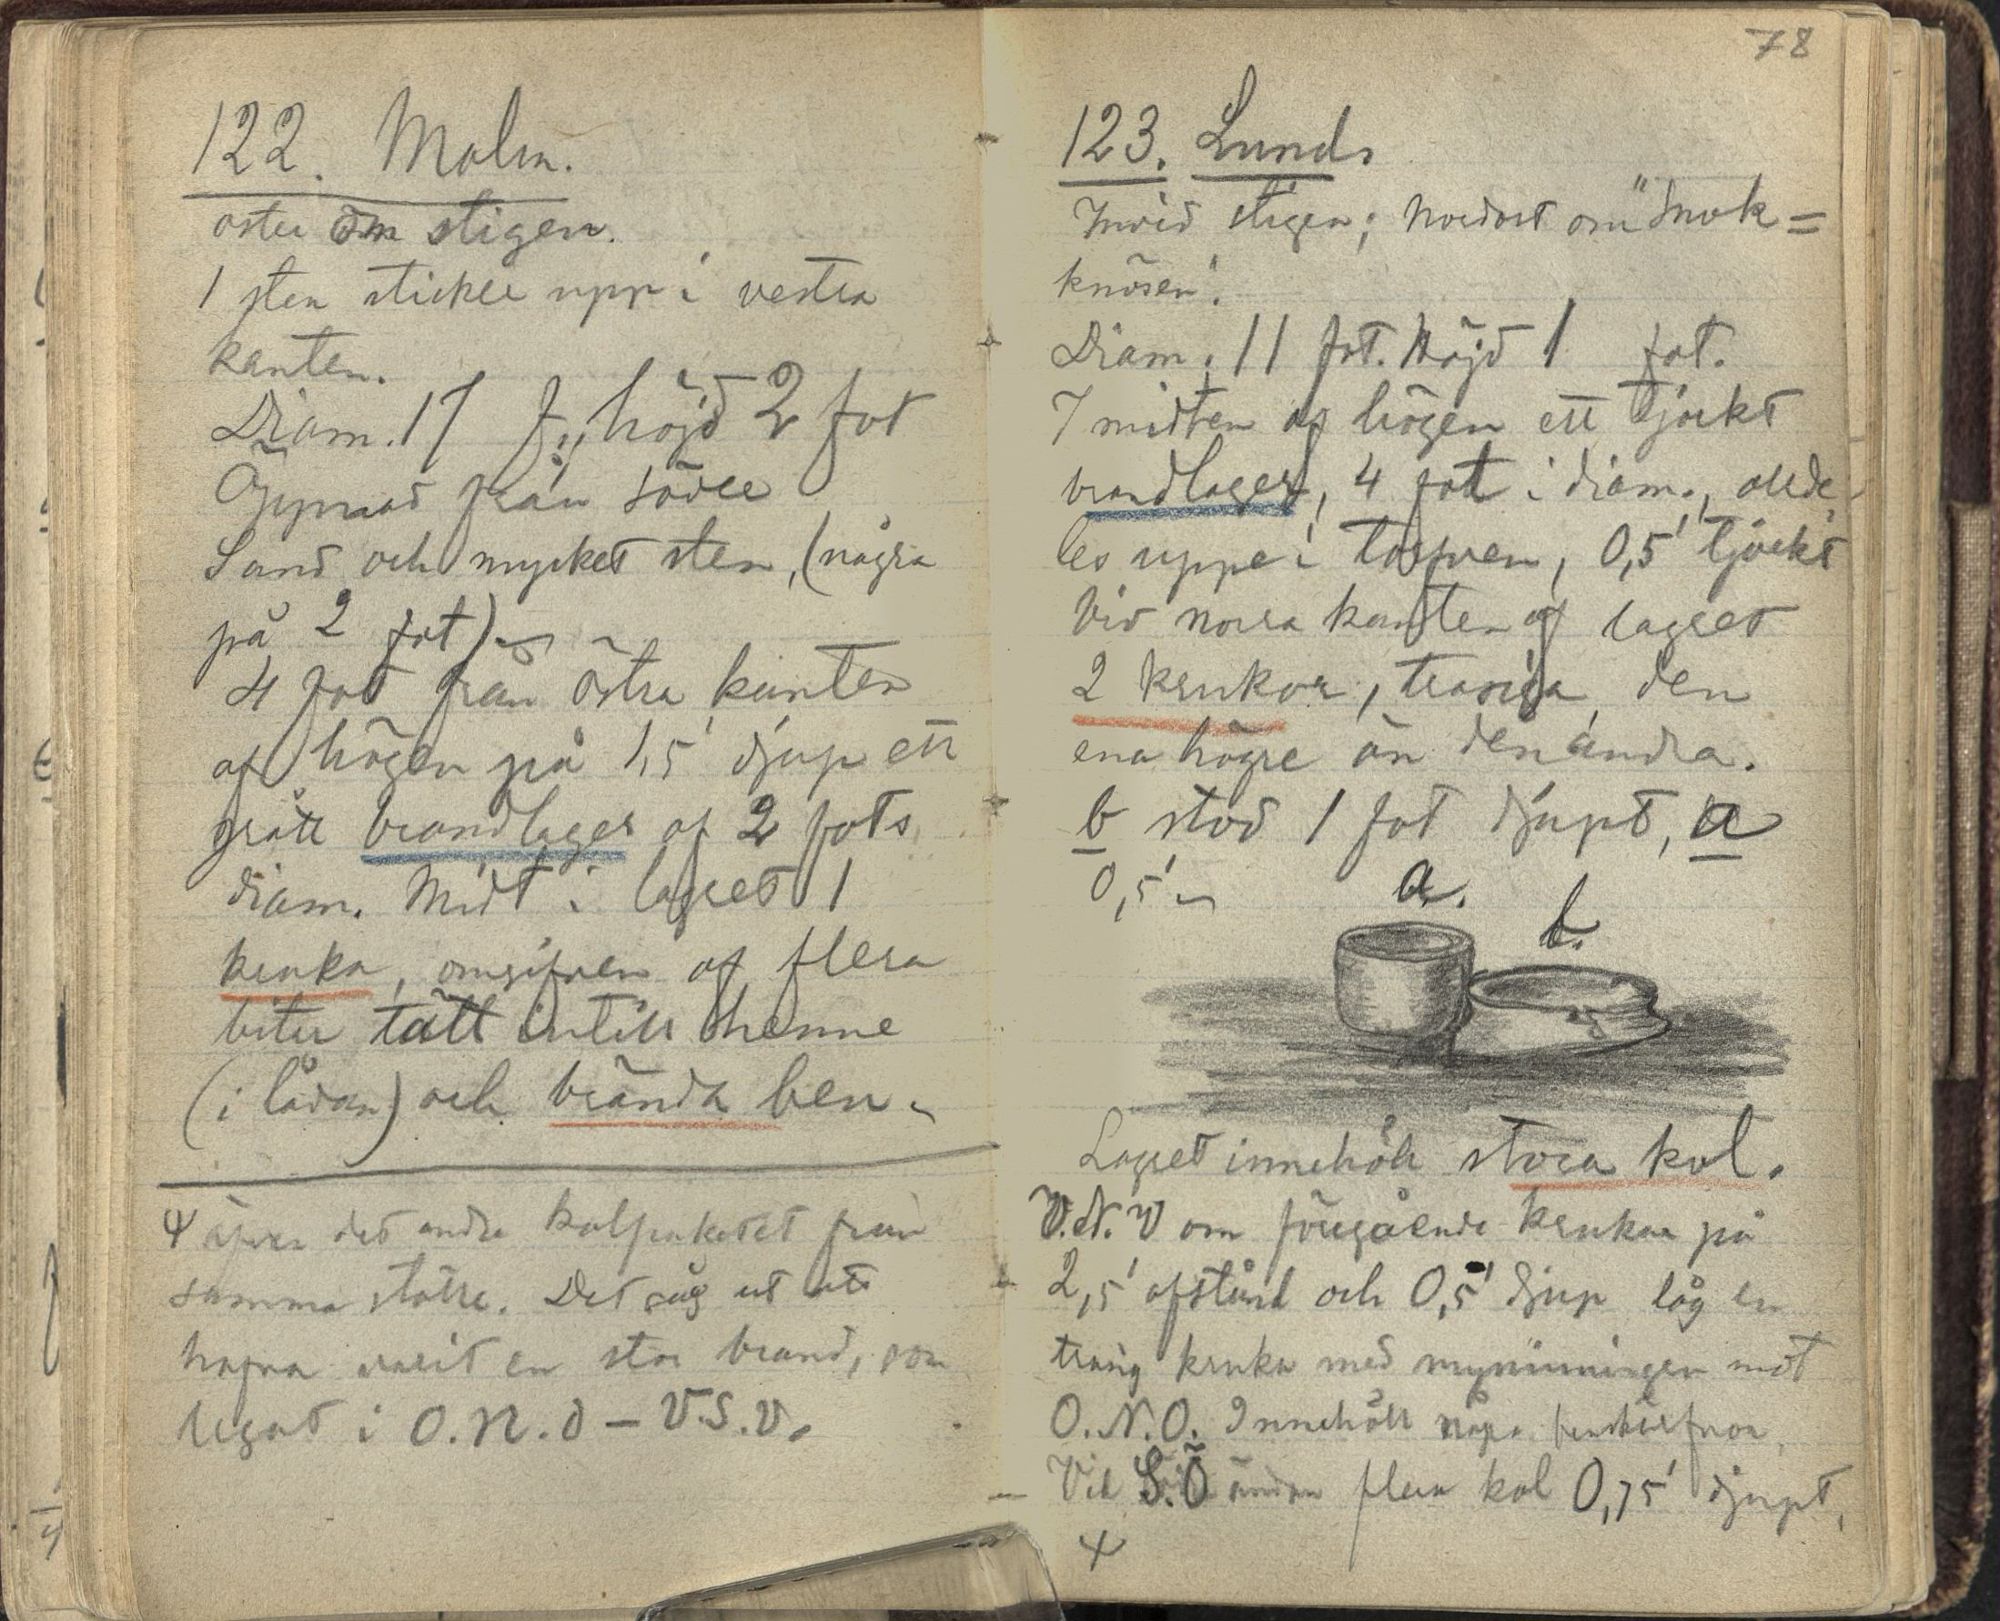 122. Malm.
öster om stigen.
1 sten sticker upp i vestra
kanten.
Diam. 17 f., höjd 2 fot
Öppnad från söder
Sand och mycket sten, (några
på 2 fot).
4 fot från östra kanten
af högen på 1,5' djup ett
grått brandlager af 2 fots
diam. Midt i lagret 1
kruka, omgifven af flera
bitar tätt intill henne
(i lådan) och brända ben.
Ψ äfven det andra kolpaketet från
samma ställe. Det såg ut att
hafva varit en stor brand, som
legat i O.N.O – V.S.V.
78
123. Lund.
Invid stigen; nordost om "Snok=
knösen".
Diam. 11 fot. Höjd 1 fot.
I midten af högen ett tjockt
brandlager, 4 fot i diam., allde-
les uppe i torfven, 0,5' tjockt
Vid norra kanten af lagret
2 krukor, trasiga, den
ena högre än den andra.
b stod 1 fot djupt, a
0,5'
a.
b.
Lagret innehöll stora kol.
V.N.V om föregående krukor på
2,5' afstånd och 0,5' djup låg en
trasig kruka med mynningen mot
O.N.O. Innehöll några
Vid S.Ö ändan flera kol 0,75' djupt,
Ψ